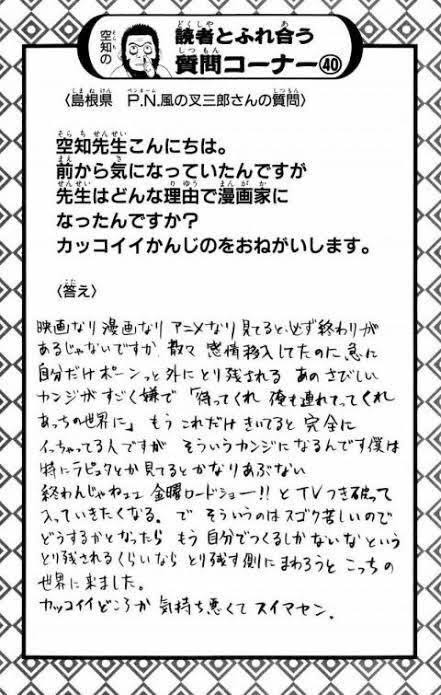 空知の
読者とふれ合う
質問コーナー㊵
〈島根県 P.N.風の又三郎さんの質問〉
空知先生こんにちは。
前から気になっていたんですが
先生はどんな理由で漫画家に
なったんですか?
カッコイイかんじのをおねがいします。
〈答え〉
映画なり漫画なりアニメなり見てると、必ず終わりが
あるじゃないですか 散々 感情移入してたのに急に
自分だけポーンっと外にとり残される あのさびしい
カンジがすごく嫌で「待ってくれ 俺も連れてってくれ
あっちの世界に」 もう これだけ きいてると 完全に
イっちゃってる人ですが そういうカンジになるんです僕は
特にラピュタとか見てるとかなりあぶない
終わんじゃねェェ 金曜ロードショー!! とTVつき破って
入っていきたくなる。で そういうのはスゴク苦しいので
どうするかとなったら もう自分でつくるしかないなという
とり残されるくらいなら とり残す側にまわろうと こっちの
世界に来ました。
カッコイイどころか 気持ち悪くてスイマセン。